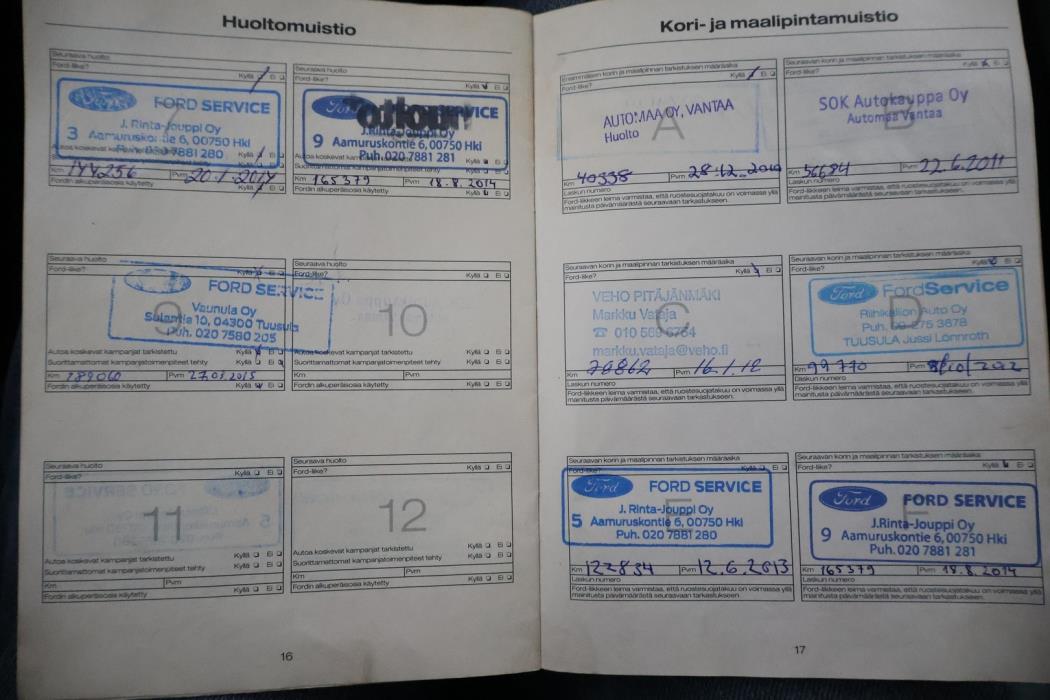 Huoltomuistio
Seuraava huolto
Ford-liike?
Kyllä Ei
Ford
FORD SERVICE
3
J. Rinta-Jouppi Oy
Aamuruskontie 6, 00750 Hki
Puh. 020 7881 280
Autoa koskevat kampanjat tarkistettu
Kyllä Ei
Km 144256 Pvm 20.1.2014
Fordin alkuperäsosia käytetty
Kyllä Ei
Seuraava huolto
Ford-liike?
Kyllä Ei
Ford
9
J.Rinta-Jouppi Oy
Aamuruskontie 6, 00750 Hki
Puh. 020 7881 281
Autoa koskevat kampanjat tarkistettu
Kyllä Ei
Km 165379 Pvm 18.8.2014
Fordin alkuperäsosia käytetty
Kyllä Ei
Seuraava huolto
Ford-liike?
Kyllä Ei
9
FORD SERVICE
Vaunula Oy
Sulantie 10, 04300 Tuusula
Puh. 020 7580 205
Autoa koskevat kampanjat tarkistettu
Kyllä Ei
Suorittamattomat kampanjatoimenpiteet tehty
Kyllä Ei
Km Pvm 27.01.2015
Fordin alkuperäsosia käytetty
Kyllä Ei
Seuraava huolto
Ford-liike?
Kyllä Ei
10
Autoa koskevat kampanjat tarkistettu
Kyllä Ei
Suorittamattomat kampanjatoimenpiteet tehty
Kyllä Ei
Km Pvm
Fordin alkuperäsosia käytetty
Kyllä Ei
Seuraava huolto
Ford-liike?
Kyllä Ei
11
Autoa koskevat kampanjat tarkistettu
Kyllä Ei
Suorittamattomat kampanjatoimenpiteet tehty
Kyllä Ei
Km Pvm
Fordin alkuperäsosia käytetty
Kyllä Ei
Seuraava huolto
Ford-liike?
Kyllä Ei
12
Autoa koskevat kampanjat tarkistettu
Kyllä Ei
Suorittamattomat kampanjatoimenpiteet tehty
Kyllä Ei
Km Pvm
Fordin alkuperäsosia käytetty
Kyllä Ei
16
Kori- ja maalipintamuistio
Ensimmäisen korin ja maalipinnan tarkistuksen määräaika
Ford-liike?
Kyllä Ei
A
AUTOMAA OY, VANTAA
Huolto
Km 40338 Pvm 28.12.2010
Laskun numero
Ford-liikkeen leima varmistaa, että ruostesuojatakuu on voimassa yllä
mainitusta päivämäärästä seuraavaan tarkastukseen.
Seuraavan korin ja maalipinnan tarkistuksen määräaika
Ford-liike?
Kyllä Ei
B
SOK Autokauppa Oy
Automaa Vantaa
Km 56684 Pvm 22.6.2011
Laskun numero
Ford-liikkeen leima varmistaa, että ruostesuojatakuu on voimassa yllä
mainitusta päivämäärästä seuraavaan tarkastukseen.
Seuraavan korin ja maalipinnan tarkistuksen määräaika
Ford-liike?
Kyllä Ei
C
VEHO PITÄJÄNMÄKI
Markku Vataja
☎ 010 569 6764
markku.vataja@veho.fi
Km Pvm 16.1.12
Laskun numero
Ford-liikkeen leima varmistaa, että ruostesuojatakuu on voimassa yllä
mainitusta päivämäärästä seuraavaan tarkastukseen.
Seuraavan korin ja maalipinnan tarkistuksen määräaika
Ford-liike?
Kyllä Ei
D
Ford
FordService
Riihikallion Auto Oy
Puh. 09 275 3678
TUUSULA Jussi Lönnroth
Km 99770 Pvm
Laskun numero
Ford-liikkeen leima varmistaa, että ruostesuojatakuu on voimassa yllä
mainitusta päivämäärästä seuraavaan tarkastukseen.
Seuraavan korin ja maalipinnan tarkistuksen määräaika
Ford-liike?
Kyllä Ei
E
Ford
FORD SERVICE
5
J. Rinta-Jouppi Oy
Aamuruskontie 6, 00750 Hki
Puh. 020 7881 280
Km 122834 Pvm 12.6.2013
Laskun numero
Ford-liikkeen leima varmistaa, että ruostesuojatakuu on voimassa yllä
mainitusta päivämäärästä seuraavaan tarkastukseen.
Seuraavan korin ja maalipinnan tarkistuksen määräaika
Ford-liike?
Kyllä Ei
F
Ford
FORD SERVICE
9
J.Rinta-Jouppi Oy
Aamuruskontie 6, 00750 Hki
Puh. 020 7881 281
Km 165379 Pvm 18.8.2014
Laskun numero
Ford-liikkeen leima varmistaa, että ruostesuojatakuu on voimassa yllä
mainitusta päivämäärästä seuraavaan tarkastukseen.
17